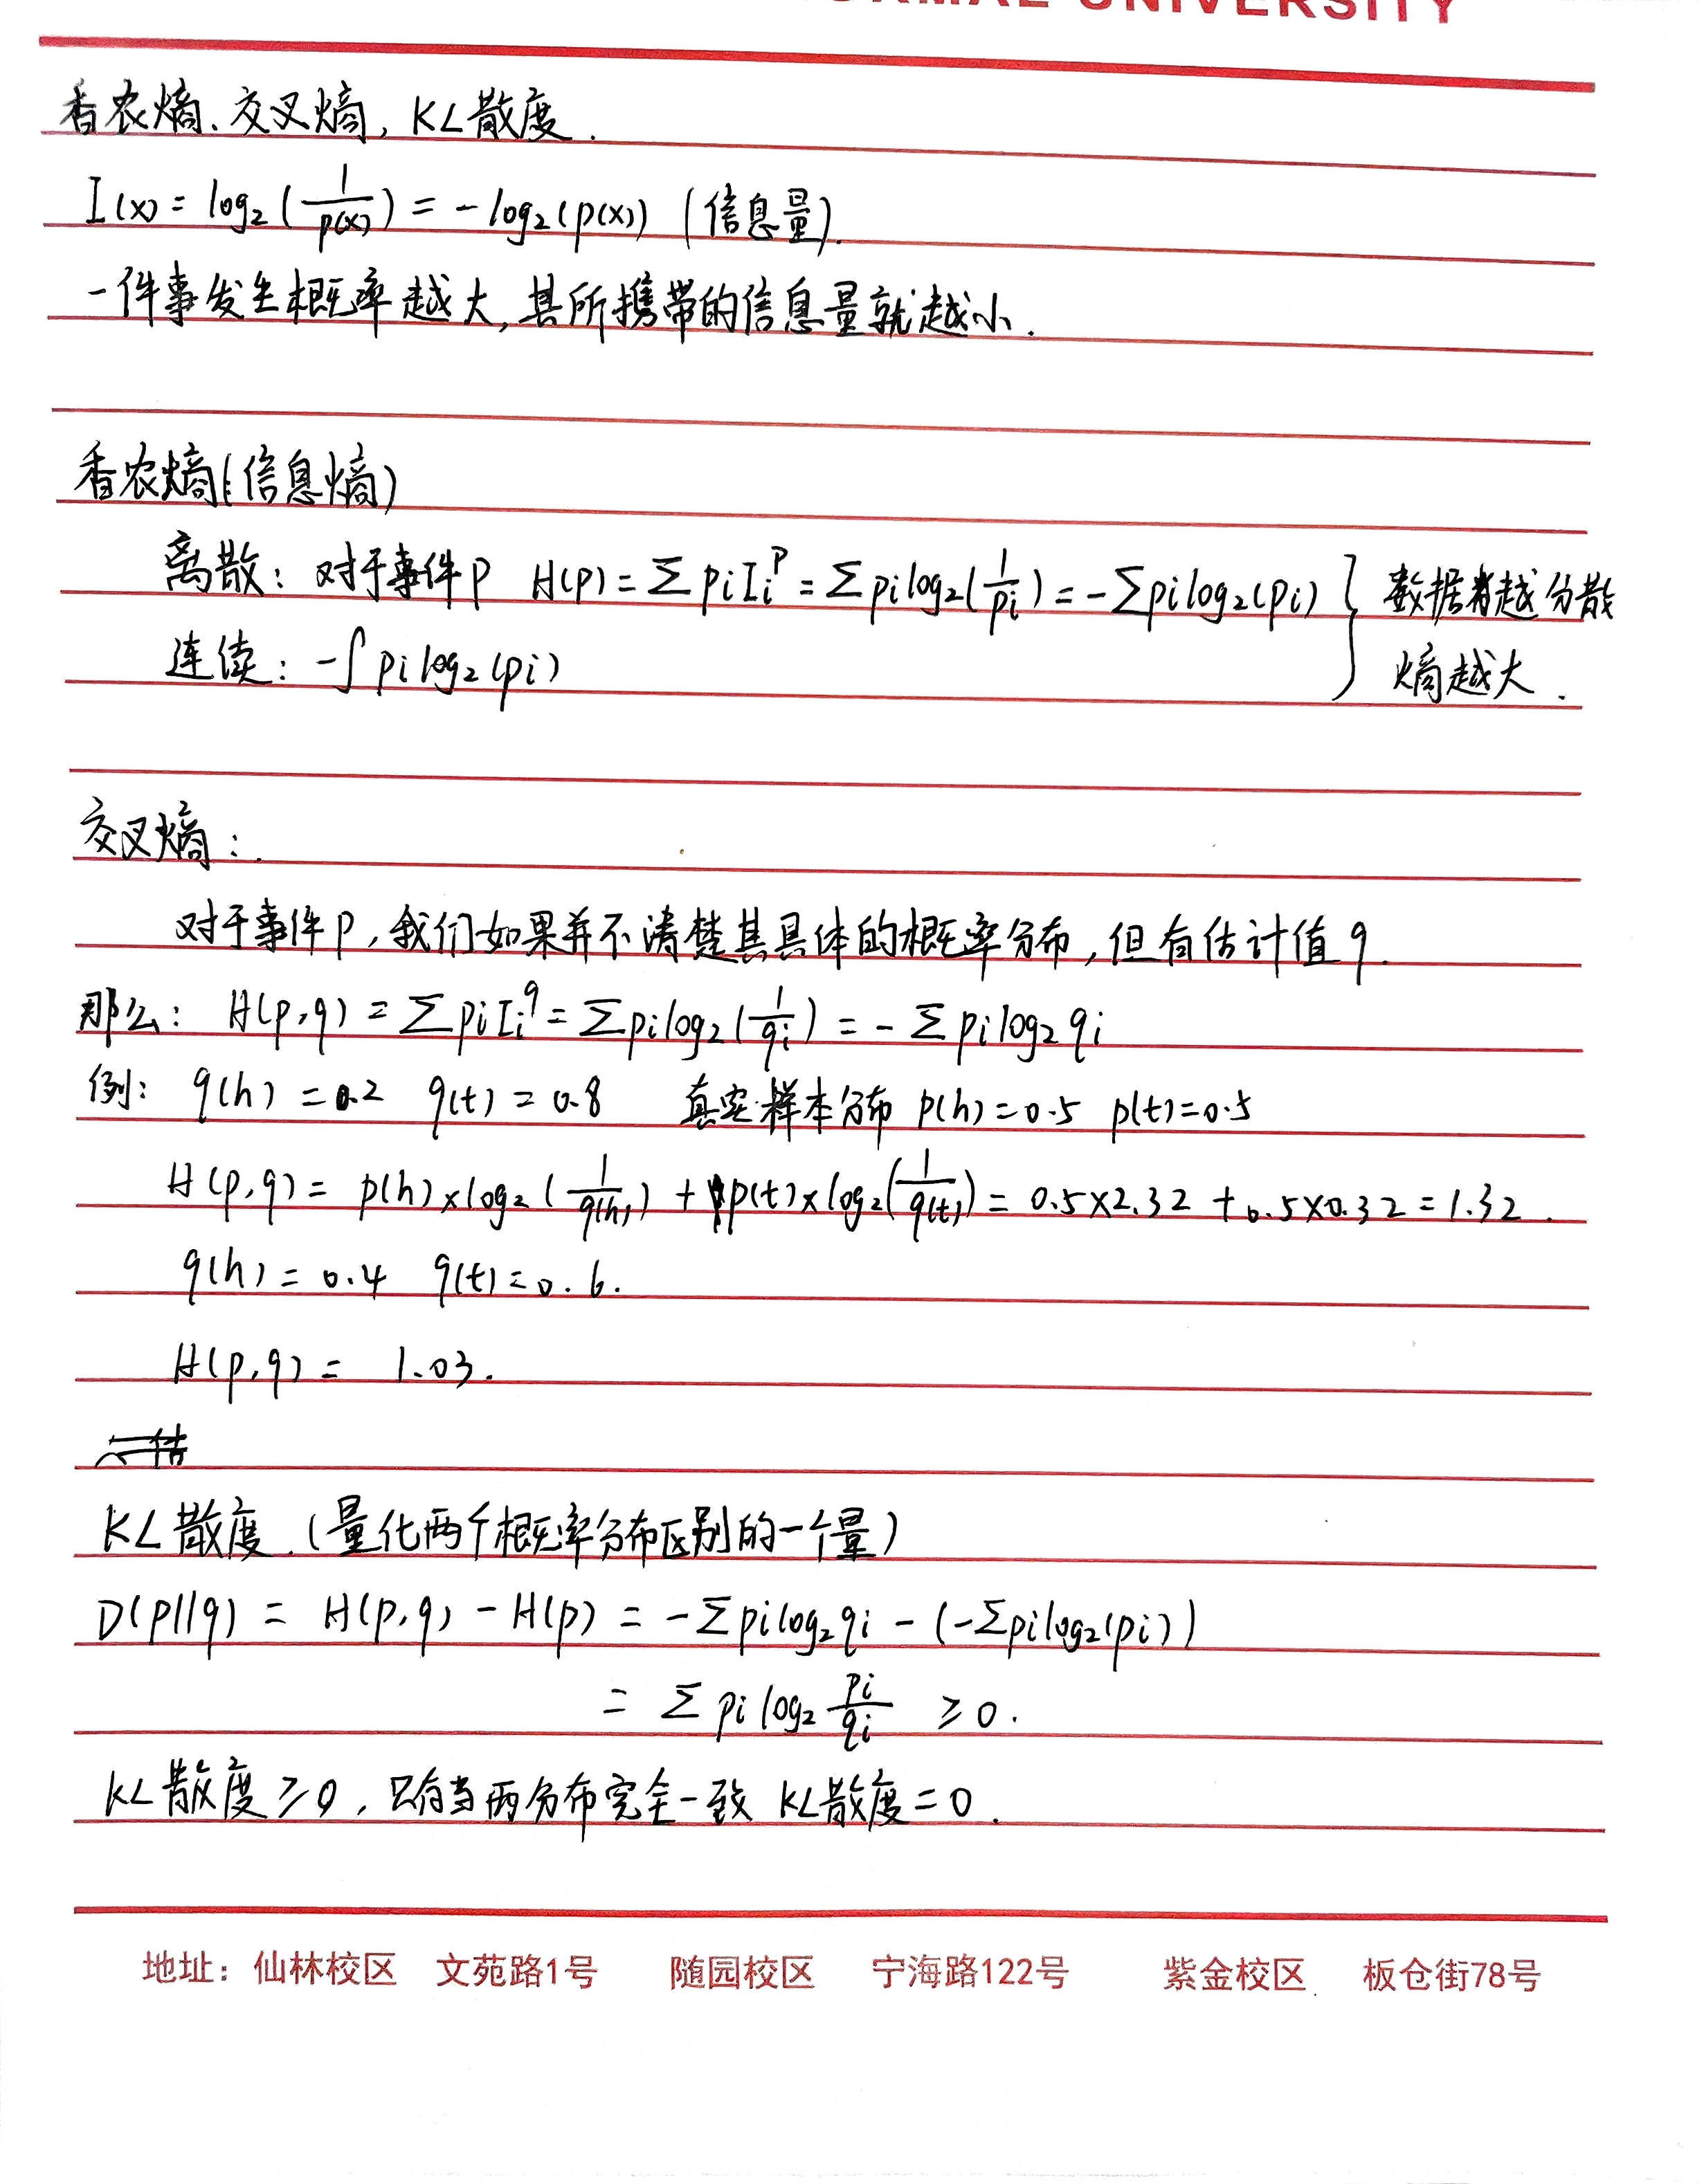 NORMAL UNIVERSITY
香农熵、交叉熵, KL散度.
I(x) = log₂(1/p(x)) = -log₂(p(x)) (信息量).
一件事发生概率越大,其所携带的信息量就越小.
香农熵(信息熵)
离散: 对于事件P H(p) = Σ pi Iiᴾ = Σ pi log₂(1/pi) = -Σ pi log₂(pi) } 数据越分散
连续: -∫ pi log₂(pi) 熵越大.
交叉熵:
对于事件P,我们如果并不清楚其具体的概率分布,但有估计值q.
那么: H(p,q) = Σ pi Ii^q = Σ pi log₂(1/qi) = -Σ pi log₂ qi
例: q(h) = 0.2 q(t) = 0.8 真实样本分布 p(h)=0.5 p(t)=0.5
H(p,q) = p(h)×log₂(1/q(h)) + p(t)×log₂(1/q(t)) = 0.5×2.32 + 0.5×0.32 = 1.32.
q(h) = 0.4 q(t) = 0.6.
H(p,q) = 1.03.
KL散度.(量化两个概率分布区别的一个量)
D(p||q) = H(p,q) - H(p) = -Σ pi log₂ qi - (-Σ pi log₂(pi))
= Σ pi log₂ pi/qi ≥ 0.
KL散度 ≥ 0, 只有当两分布完全一致 KL散度 = 0.
地址: 仙林校区 文苑路1号 随园校区 宁海路122号 紫金校区 板仓街78号